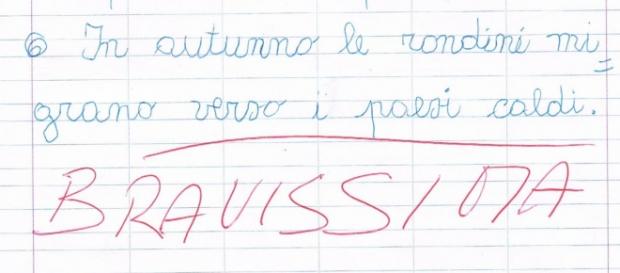 ⑥ In autunno le rondini mi=
grano verso i paesi caldi.
BRAVISSIMA